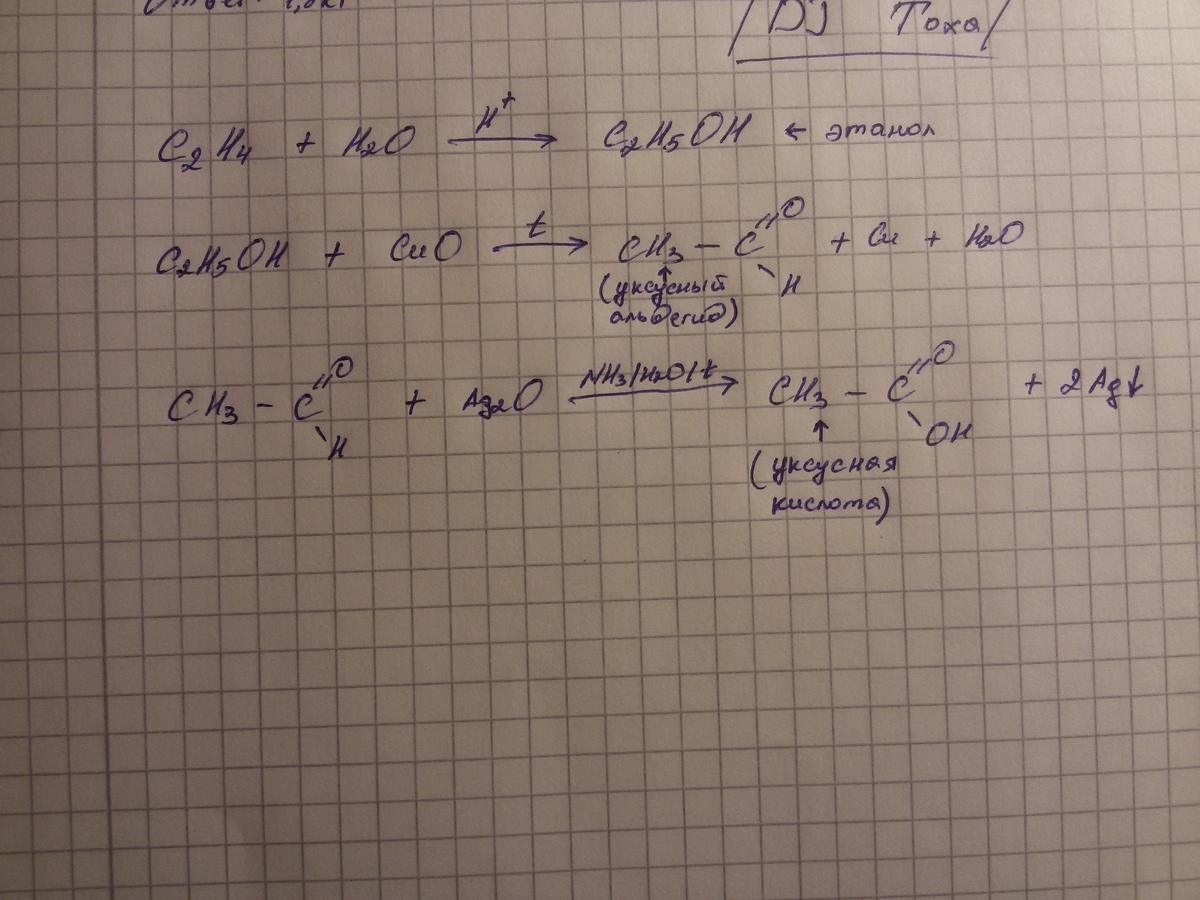 /DJ Toxa/
C₂H₄ + H₂O H⁺→ C₂H₅OH ← этанол
C₂H₅OH + CuO t→ CH₃ – C =O –H + Cu + H₂O
(уксусный
альдегид)
CH₃ – C =O –H + Ag₂O NH₃/H₂O/t→ CH₃ – C =O –OH + 2Ag↓
(уксусная
кислота)